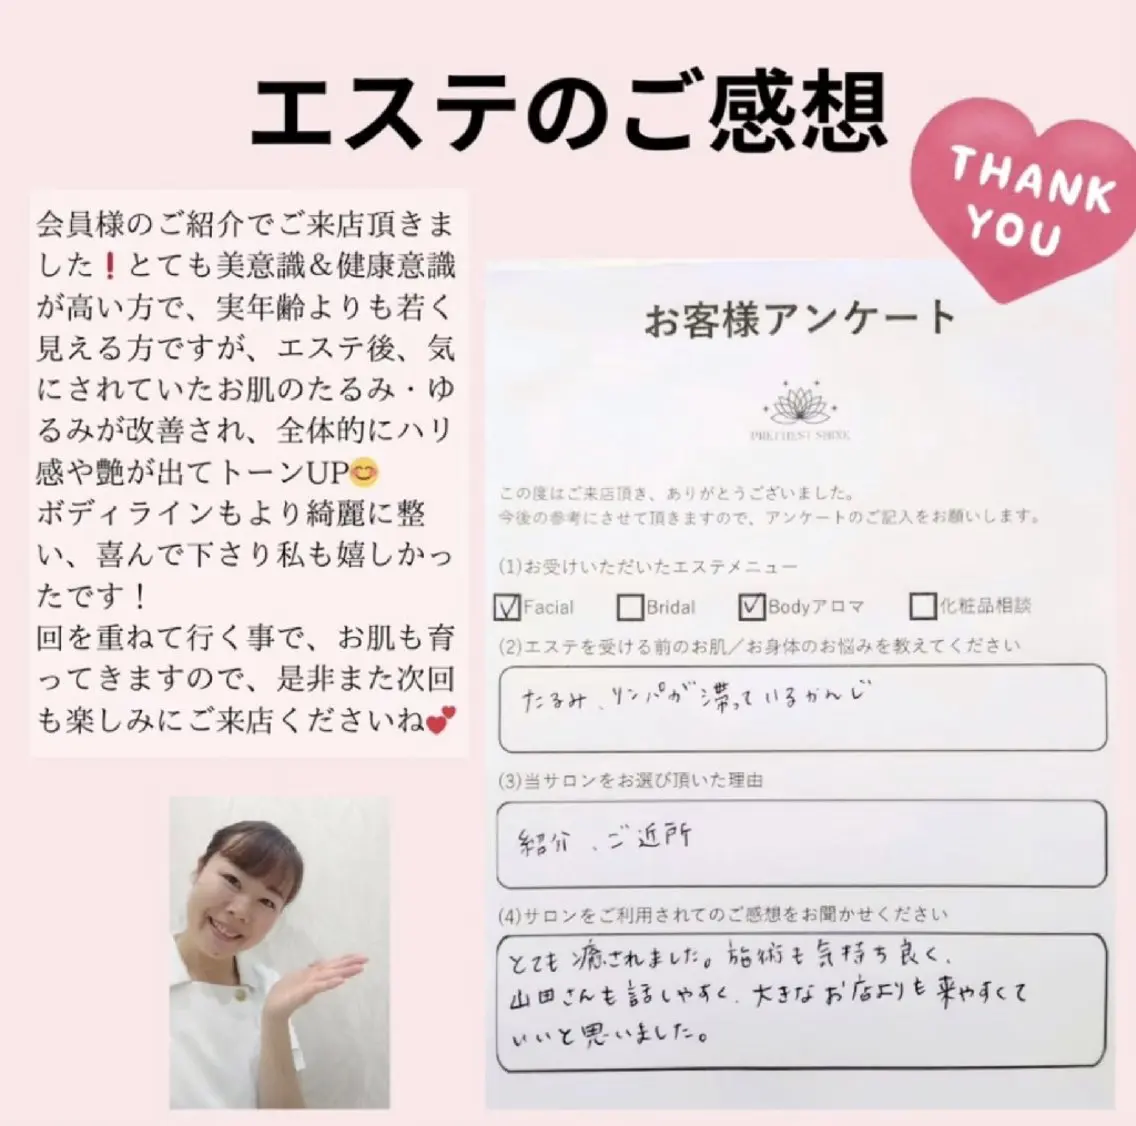 エステのご感想
THANK
YOU
会員様のご紹介でご来店頂きま
した❗とても美意識＆健康意識
が高い方で、実年齢よりも若く
見える方ですが、エステ後、気
にされていたお肌のたるみ・ゆ
るみが改善され、全体的にハリ
感や艶が出てトーンUP😊
ボディラインもより綺麗に整
い、喜んで下さり私も嬉しかっ
たです！
回を重ねて行く事で、お肌も育
ってきますので、是非また次回
も楽しみにご来店くださいね💕
お客様アンケート
PRETTIEST SHINE
この度はご来店頂き、ありがとうございました。
今後の参考にさせて頂きますので、アンケートのご記入をお願いします。
(1)お受けいただいたエステメニュー
☑Facial ☐Bridal ☑Bodyアロマ ☐化粧品相談
(2)エステを受ける前のお肌／お身体のお悩みを教えてください
たるみ、リンパが滞っているかんじ
(3)当サロンをお選び頂いた理由
紹介、ご近所
(4)サロンをご利用されてのご感想をお聞かせください
とても癒されました。施術も気持ち良く、
山田さんも話しやすく、大きなお店よりも来やすくて
いいと思いました。